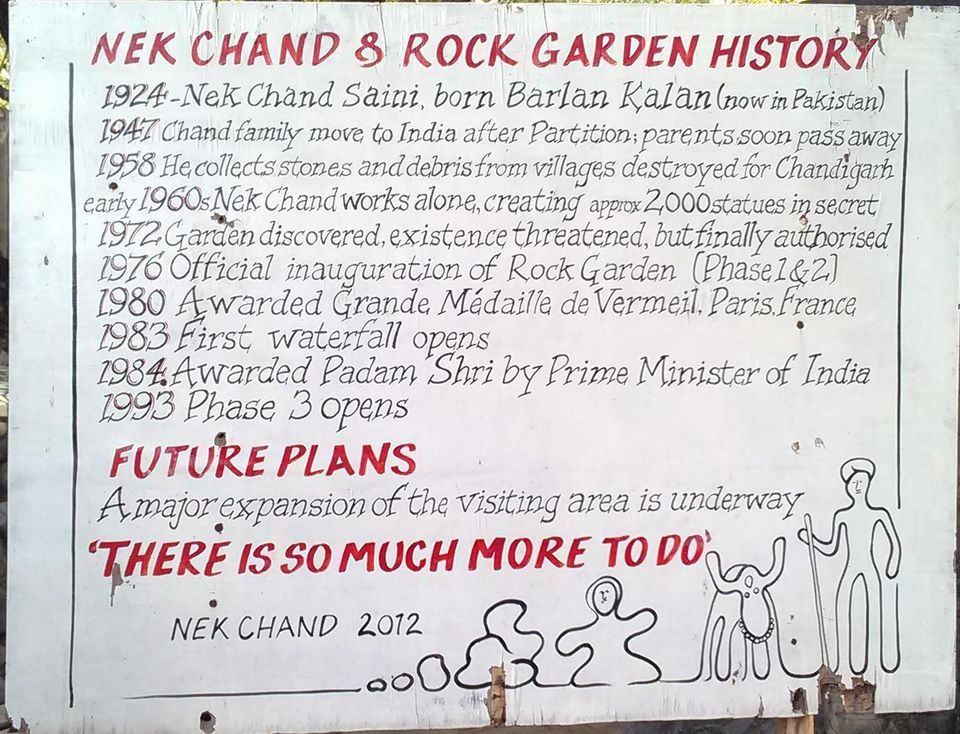 NEK CHAND & ROCK GARDEN HISTORY
1924-Nek Chand Saini, born Barlan Kalan (now in Pakistan)
1947 Chand family move to India after Partition; parents soon pass away
1958 He collects stones and debris from villages destroyed for Chandigarh
early 1960s Nek Chand works alone, creating approx 2,000 statues in secret
1972 Garden discovered, existence threatened, but finally authorised
1976 Official inauguration of Rock Garden (Phase 1 & 2)
1980 Awarded Grande Médaille de Vermeil, Paris, France
1983 First waterfall opens
1984 Awarded Padam Shri by Prime Minister of India
1993 Phase 3 opens
FUTURE PLANS
A major expansion of the visiting area is underway
'THERE IS SO MUCH MORE TO DO'
NEK CHAND 2012